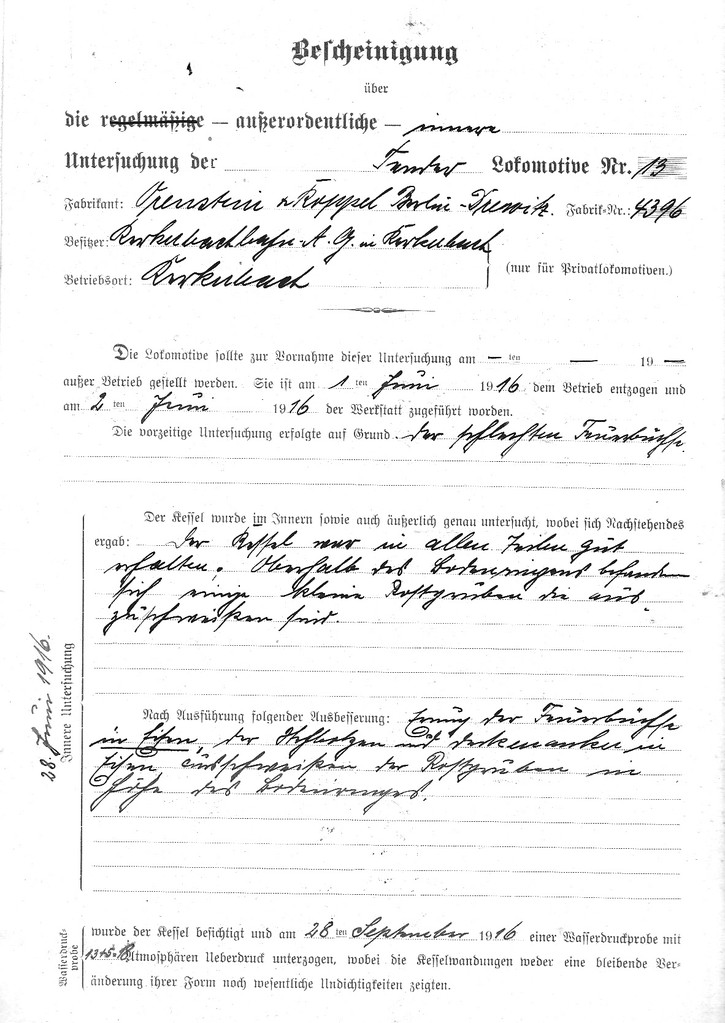 Bescheinigung
über
die regelmäßige — außerordentliche — innere
Untersuchung der Tender Lokomotive Nr. 13
Fabrikant: Orenstein & Koppel Berlin-Drewitz. Fabrik-Nr.: 4396
Besitzer: Kerkerbachbahn A. G. in Kerkerbach
(nur für Privatlokomotiven.)
Betriebsort: Kerkerbach
Die Lokomotive sollte zur Vornahme dieser Untersuchung am — ten — 19 —
außer Betrieb gestellt werden. Sie ist am 1 ten Juni 1916 dem Betrieb entzogen und
am 2 ten Juni 1916 der Werkstatt zugeführt worden.
Die vorzeitige Untersuchung erfolgte auf Grund der schlechten Feuerbüchse.
Der Kessel wurde im Innern sowie auch äußerlich genau untersucht, wobei sich Nachstehendes
ergab: Der Kessel war in allen Teilen gut
erhalten. Oberhalb des Bodenringes befanden
sich einige kleine Rostgruben die aus-
zuschweißen sind.
28. Juni 1916.
Innere Untersuchung
Nach Ausführung folgender Ausbesserung: der Feuerbüchse
in Eisen, der Stehbolzen und Deckenanker in
Eisen Ausschweißen der Rostgruben in
Höhe des Bodenringes.
Wasserdruck-
probe
wurde der Kessel besichtigt und am 28 ten September 1916 einer Wasserdruckprobe mit
13+5=18 Atmosphären Ueberdruck unterzogen, wobei die Kesselwandungen weder eine bleibende Ver-
änderung ihrer Form noch wesentliche Undichtigkeiten zeigten.